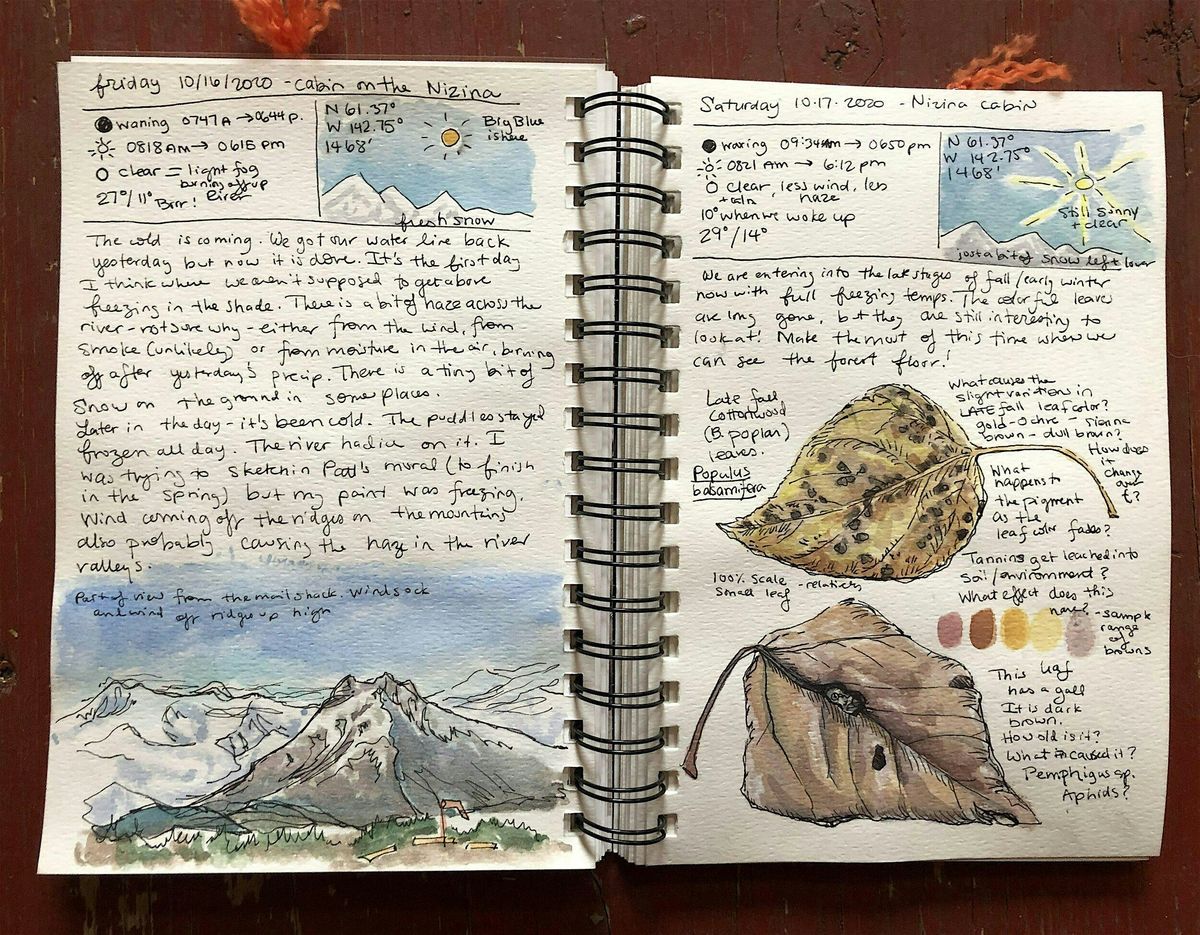 friday 10/16/2020 - cabin on the Nizina
waning 0747A → 0644 p.
0818 AM → 0615 pm
clear = light fog
burning off up
river
27°/11° Brr!
N 61.37°
W 142.75°
1468'
Big Blue
is here
fresh snow
The cold is coming. We got our water line back
yesterday but now it is done. It's the first day
I think where we aren't supposed to get above
freezing in the shade. There is a bit of haze across the
river - not sure why - either from the wind, from
smoke (unlikely) or from moisture in the air, burning
off after yesterday's precip. There is a tiny bit of
snow on the ground in some places.
Later in the day - it's been cold. The puddles stayed
frozen all day. The river had ice on it. I
was trying to sketch in Patt's mural (to finish
in the spring) but my paint was freezing.
Wind coming off the ridges on the mountains
also probably causing the haze in the river
valleys.
Part of view from the mail shack. Windsock
and wind off ridges up high
Saturday 10.17.2020 - Nizina cabin
waxing 09:34am → 0650 pm
0821 AM → 6:12 pm
clear, less wind, less
+ calm haze
10° when we woke up
29°/14°
N 61.37°
W 142.75°
1468'
Still sunny
+ clear
just a bit of snow left over
We are entering into the late stages of fall/early winter
now with full freezing temps. The colorful leaves
are long gone, but they are still interesting to
look at! Make the most of this time when we
can see the forest floor!
Late fall
cottonwood
(B. poplar)
leaves.
Populus
balsamifera
What causes the
slight variations in
LATE fall leaf color?
gold - ochre - sienna
brown - dull brown?
How does
it
change
over
t?
What
happens to
the pigment
as the
leaf color fades?
Tannins get leached into
soil/environment?
What effect does this
have?
100% scale - relatively
small leaf
- sample
range
of
browns
This leaf
has a gall
It is dark
brown.
How old is it?
What caused it?
Pemphigus sp.
Aphids?